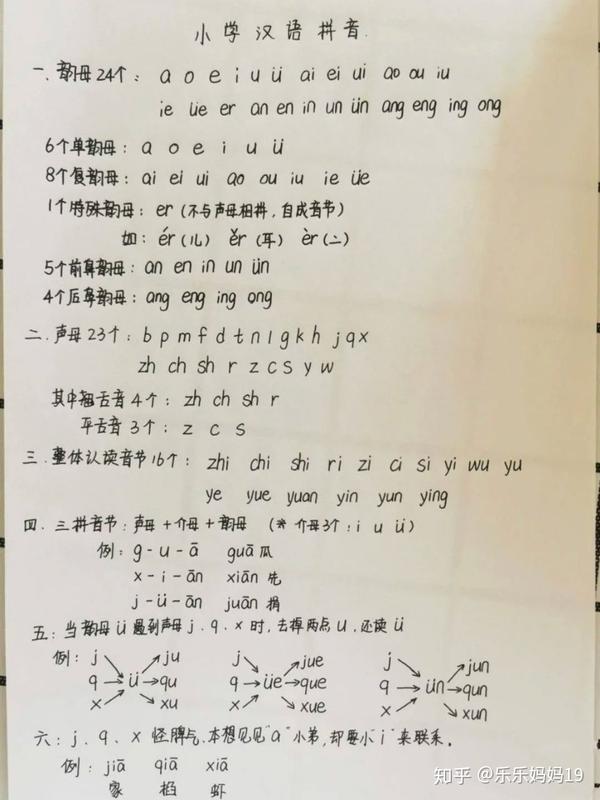 小学汉语拼音.
一、韵母24个: a o e i u ü ai ei ui ao ou iu
ie üe er an en in un ün ang eng ing ong
6个单韵母: a o e i u ü
8个复韵母: ai ei ui ao ou iu ie üe
1个特殊韵母: er (不与声母相拼,自成音节)
如: ér(儿) ěr(耳) èr(二)
5个前鼻韵母: an en in un ün
4个后鼻韵母: ang eng ing ong
二、声母23个: b p m f d t n l g k h j q x
zh ch sh r z c s y w
其中翘舌音4个: zh ch sh r
平舌音3个: z c s
三、整体认读音节16个: zhi chi shi ri zi ci si yi wu yu
ye yue yuan yin yun ying
四、三拼音节: 声母+介母+韵母 (* 介母3个: i u ü)
例: g-u-ā guā瓜
x-i-ān xiān先
j-ü-ān juān捐
五: 当韵母ü遇到声母j、q、x时,去掉两点u,还读ü
例: j ju j jue j jun
q ü qu q üe que q ün qun
x xu x xue x xun
六: j、q、x怪脾气,本想见见"a"小弟,却要小"i"来联系。
例: jiā qiā xiā
家 掐 虾
知乎 @乐乐妈妈19